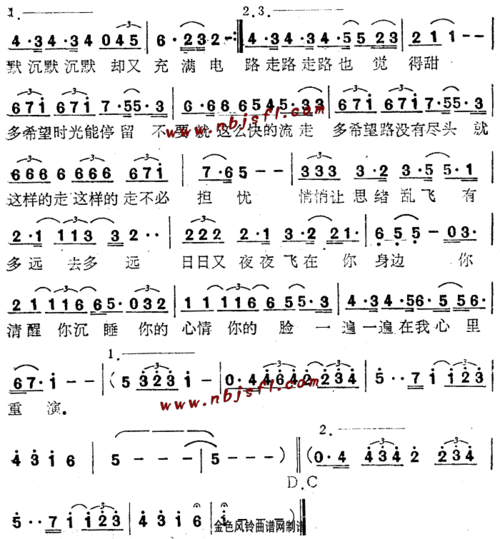 1. 2.3.
4·34·34 045 | 6·232- :‖ 4·34·34·55 23 | 211--
默沉默沉默 却又 充 满 电 路 走路 走路 也 觉 得甜
671 671 7·55·3 | 6·66 6545·33 | 671 671 7·55·3
多希望时光能停 留 不要就 这么快的流 走 多希望路没有尽头 就
666 666 671 | 7·65-- | 333 3·2 3·5 5·1
这样的走 这样的 走不必 担 忧 悄悄让 思 绪 乱 飞 有
2·1 113 32·· | 222 2·1 3·2 21· | 655- 03·
多 远 去多 远 日日又 夜 夜 飞 在 你 身 边 你
21 116 65·032 | 11 116 655·3 | 4·34·56·5 56·
清醒 你沉 睡 你的 心情 你的 脸 一 遍 一遍 在我 心 里
1.
67·1-- | (5 3231- | 0·44642·234 | 5··71 123
重 演。
www.nbjsfl.com
www.nbjsfl.com
2.
4316 | 5--- | 5---) ‖ (0·4 434 2 234
D.C
5··71 123 | 4316 | 1
金色风铃曲谱网制谱